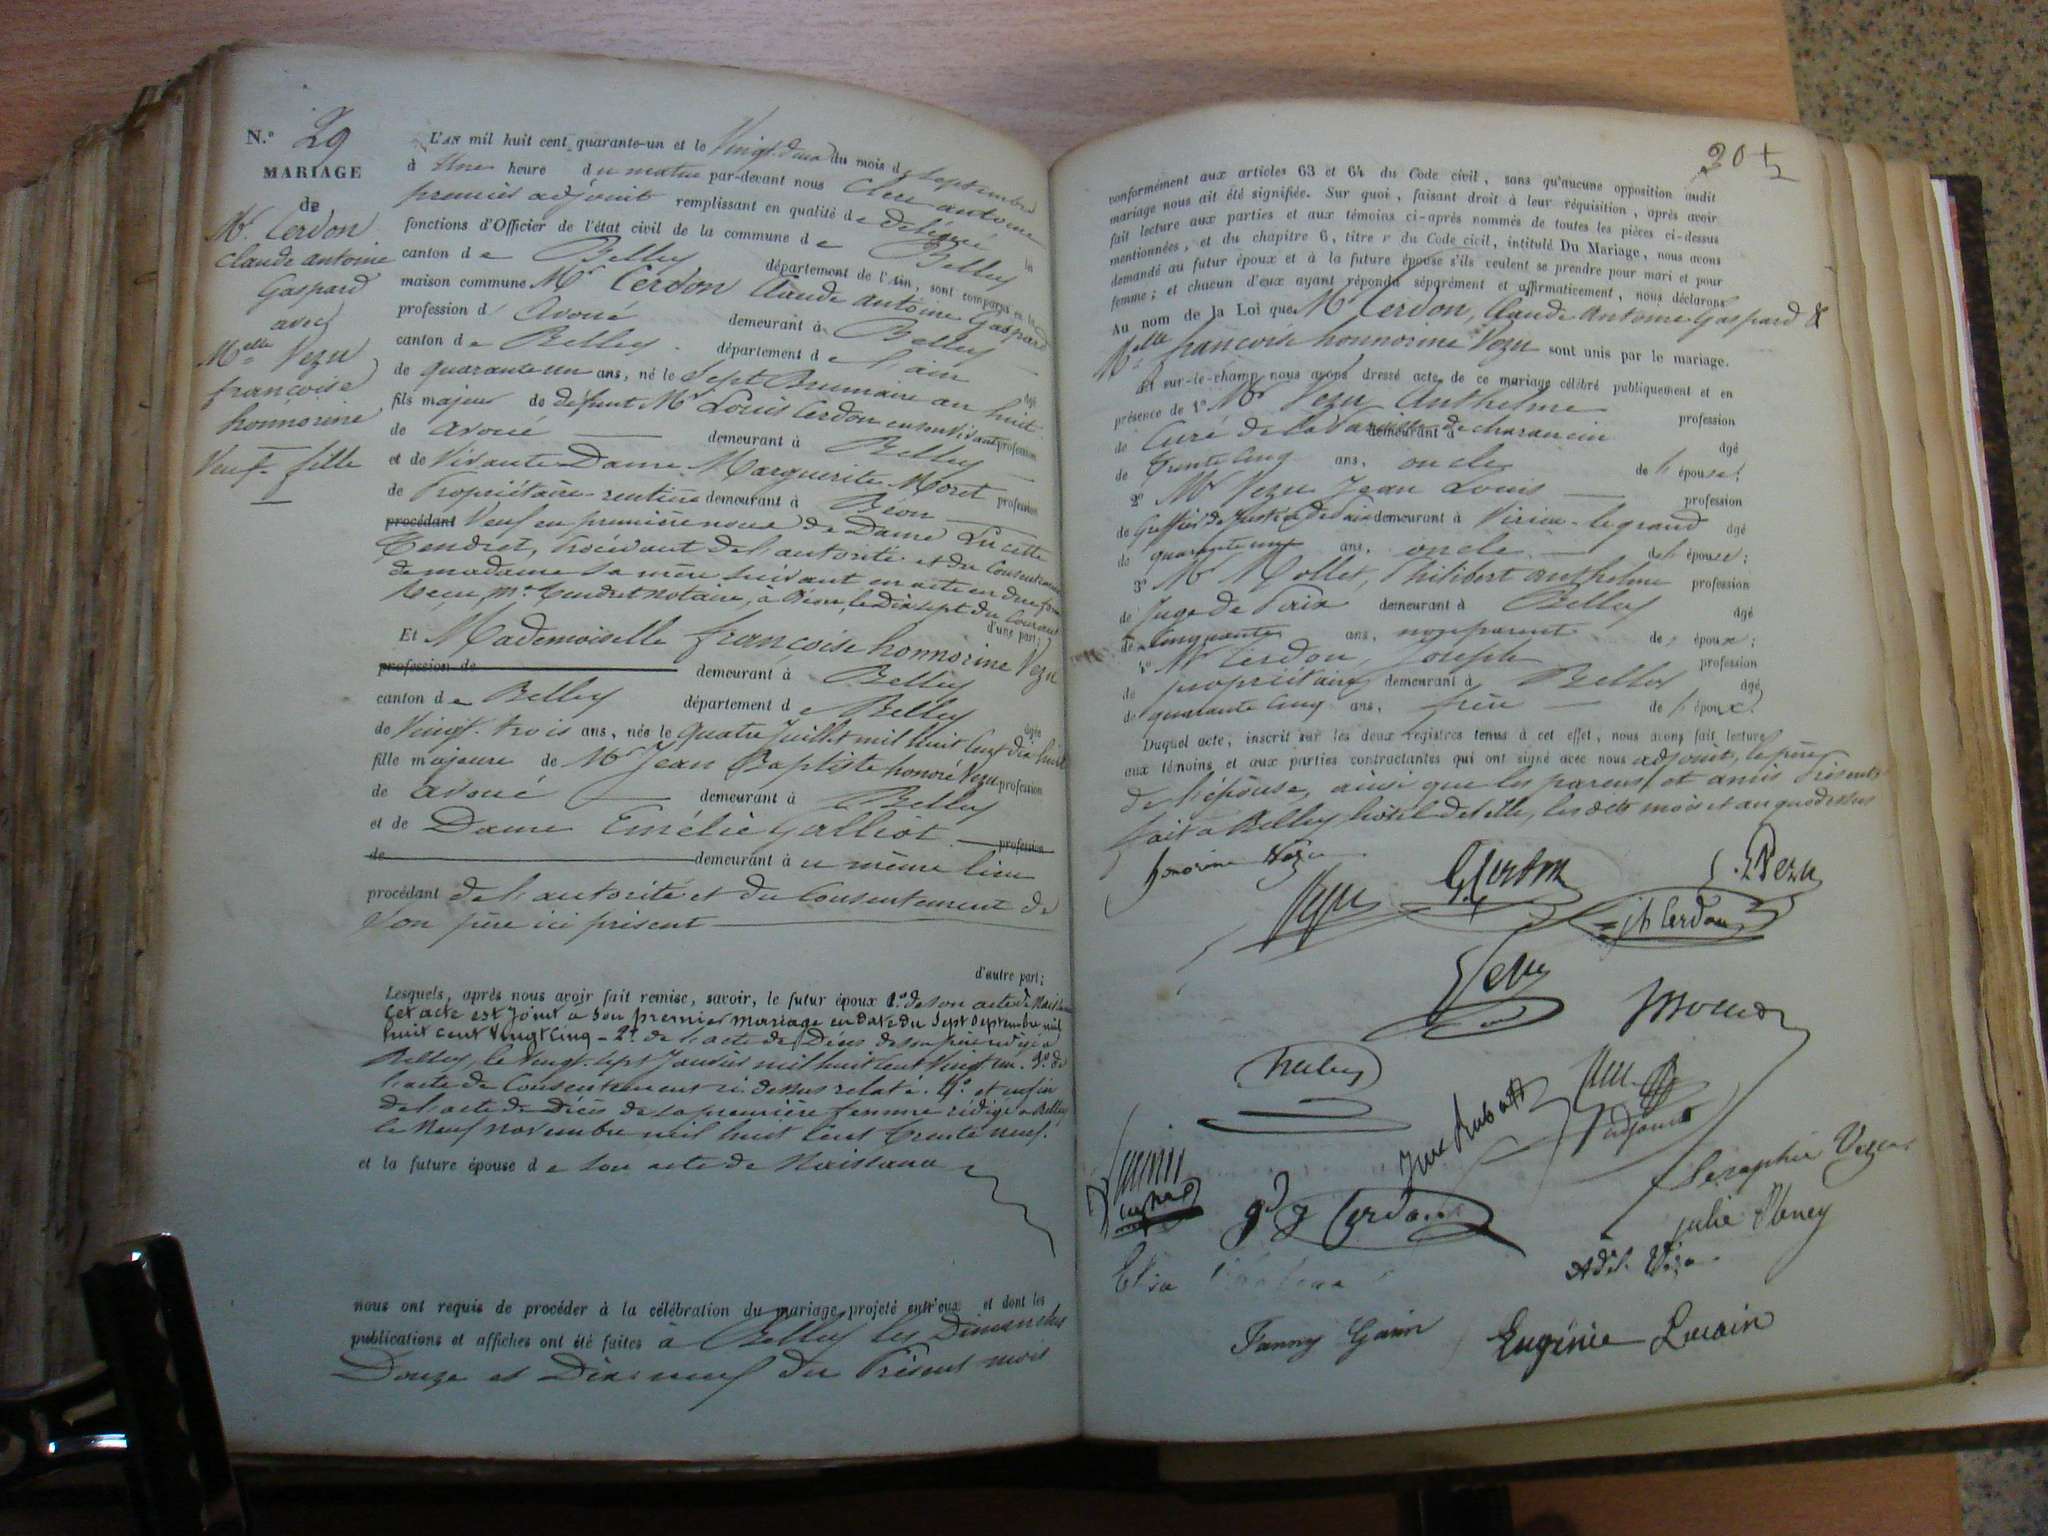 N.° 29
MARIAGE
de
Mr. Cerdon
Claude antoine
Gaspard
avec
Melle Vezu
francoise
honnorine
Veuf. fille
L'AN mil huit cent quarante-un et le Vingt deux du mois de Septembre
à Une heure du matin par-devant nous Clerc antoine
premier adjoint remplissant en qualité de délégué les
fonctions d'Officier de l'état civil de la commune de Belley
canton de Belley département de l'Ain, sont comparus en la
maison commune Mr Cerdon Claude antoine Gaspard
profession d'Avoué demeurant à Belley
canton de Belley département de l'ain âgé
de quarante un ans, né le Sept Brumaire an huit
fils majeur de défunt Mr Louis Cerdon en son vivant profession
de avoué demeurant à Belley
et de Vivante Dame Marguerite Moret profession
de Propriétaire rentière demeurant à Béon
procédant Veuf en première noce de Dame Lucette
Tendret, Procédant de l'autorité et du Consentement
de madame Sa mère suivant un acte en due forme
Recu Me. Tendret notaire, à Béon le Dix sept du Courant
d'une part;
Et Mademoiselle françoise honnorine Vezu
profession de demeurant à Belley
canton de Belley département de Belley
âgée
de Vingt-trois ans, née le quatre Juillet mil huit Cent dix huit
fille majeure de Mr Jean Baptiste honoré Vezu profession
de avoué demeurant à Belley
et de Dame Emélie Galliot profession
de demeurant à u même lieu
procédant de l'autorité et du Consentement de
Son père ici présent
d'autre part;
Lesquels, après nous avoir fait remise, savoir, le futur époux 1.° de son acte de Naissance
Cet acte est joint a son premier mariage en date du Sept Septembre mil
huit cent Vingt Cinq - 2°. de l'acte de Décès de son père rédigé à
Belley le Vingt-sept Janvier mil huit Cent Vingt un. 3.° de
l'acte de Consentement ci-dessus relaté. 4.° et enfin
de l'acte de Décès de sa première femme rédigé à Belley
le Neuf novembre mil huit Cent Trente neuf.
et la future épouse de son acte de Naissance
nous ont requis de procéder à la célébration du mariage projeté entr'eux et dont les
publications et affiches ont été faites à Belley les Dimanches
Douze et Dix neuf du Présent mois
conformément aux articles 63 et 64 du Code civil, sans qu'aucune opposition audit
mariage nous ait été signifiée. Sur quoi, faisant droit à leur réquisition, après avoir
fait lecture aux parties et aux témoins ci-après nommés de toutes les pièces ci-dessus
mentionnées, et du chapitre 6, titre v du Code civil, intitulé Du Mariage, nous avons
demandé au futur époux et à la future épouse s'ils veulent se prendre pour mari et pour
femme; et chacun d'eux ayant répondu séparément et affirmativement, nous déclarons
Au nom de la Loi que Mr Cerdon, Claude Antoine Gaspard &
Melle francoise honnorine Vezu sont unis par le mariage.
Et sur-le-champ nous avons dressé acte de ce mariage célébré publiquement et en
présence de 1° Mr Vezu Anthelme profession
de Curé de la Paroisse demeurant à de charancin âgé
de Trente Cinq ans, oncle de l'épouse;
2° Mr Vezu Jean Louis profession
de Greffier de Justice de Paix demeurant à Virieu-legrand âgé
de quarante un ans, oncle de l'épouse;
3° Mr Mollet, Philibert anthelme profession
de Juge de Paix demeurant à Belley âgé
de Cinquante ans, non parent des époux;
4° Mr Cerdon, Joseph profession
de propriétaire demeurant à Belley âgé
de quarante Cinq ans, frère de l'époux.
Duquel acte, inscrit sur les deux registres tenus à cet effet, nous avons fait lecture
aux témoins et aux parties contractantes qui ont signé avec nous adjoint, le père
de l'épouse, ainsi que les parens et amis Présents
fait à Belley, hôtel de ville, les dits mois et an que dessus
honorine Vezu
Vezu
Cerdon
Vezu
jh Cerdon
adjoint
Seraphie Vezu
Cerdon
Julie
Elisa
Fanny
Eugénie